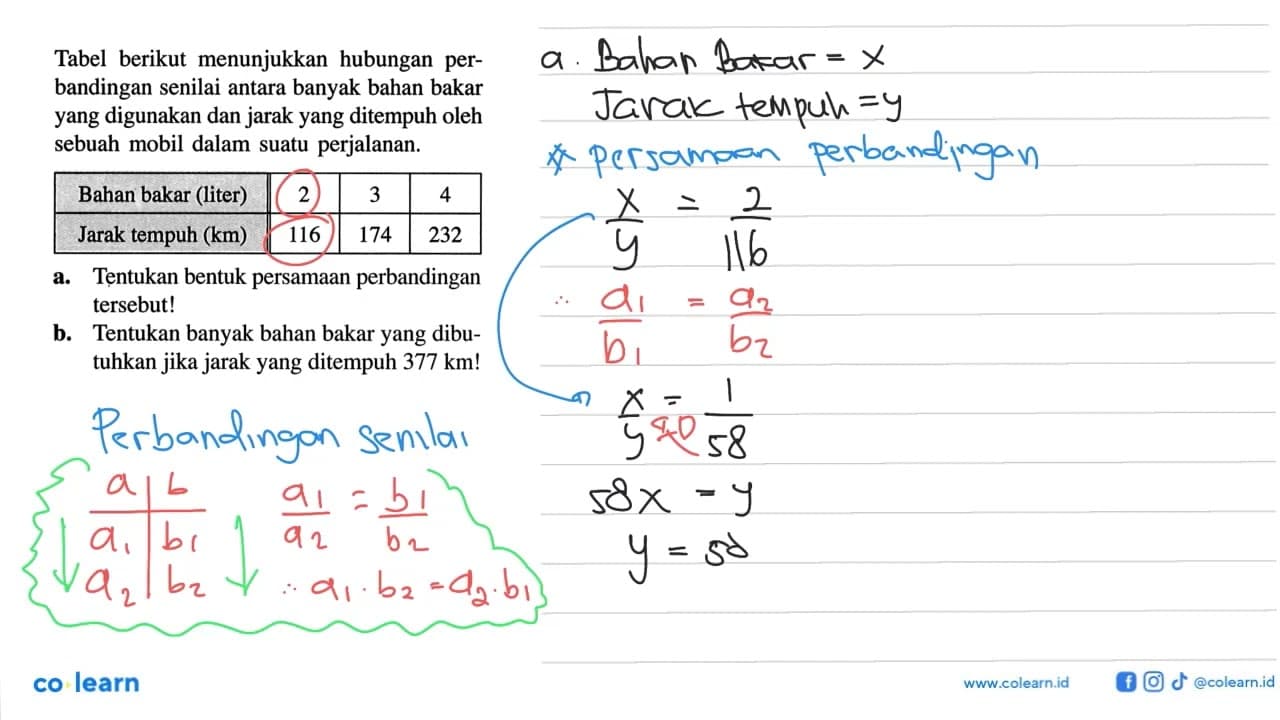 Tabel berikut menunjukkan hubungan per-
bandingan senilai antara banyak bahan bakar
yang digunakan dan jarak yang ditempuh oleh
sebuah mobil dalam suatu perjalanan.
Bahan bakar (liter) 2 3 4
Jarak tempuh (km) 116 174 232
a. Tentukan bentuk persamaan perbandingan
tersebut!
b. Tentukan banyak bahan bakar yang dibu-
tuhkan jika jarak yang ditempuh 377 km!
Perbandingan senilai
a | b
a₁ | b₁
a₂ | b₂
a₁/a₂ = b₁/b₂
∴ a₁ . b₂ = a₂ . b₁
a. Bahan Bakar = x
Jarak tempuh = y
* persamaan perbandingan
x/y = 2/116
∴ a₁/b₁ = a₂/b₂
x/y = 1/58
58x = y
y = 58
co learn
www.colearn.id
@colearn.id